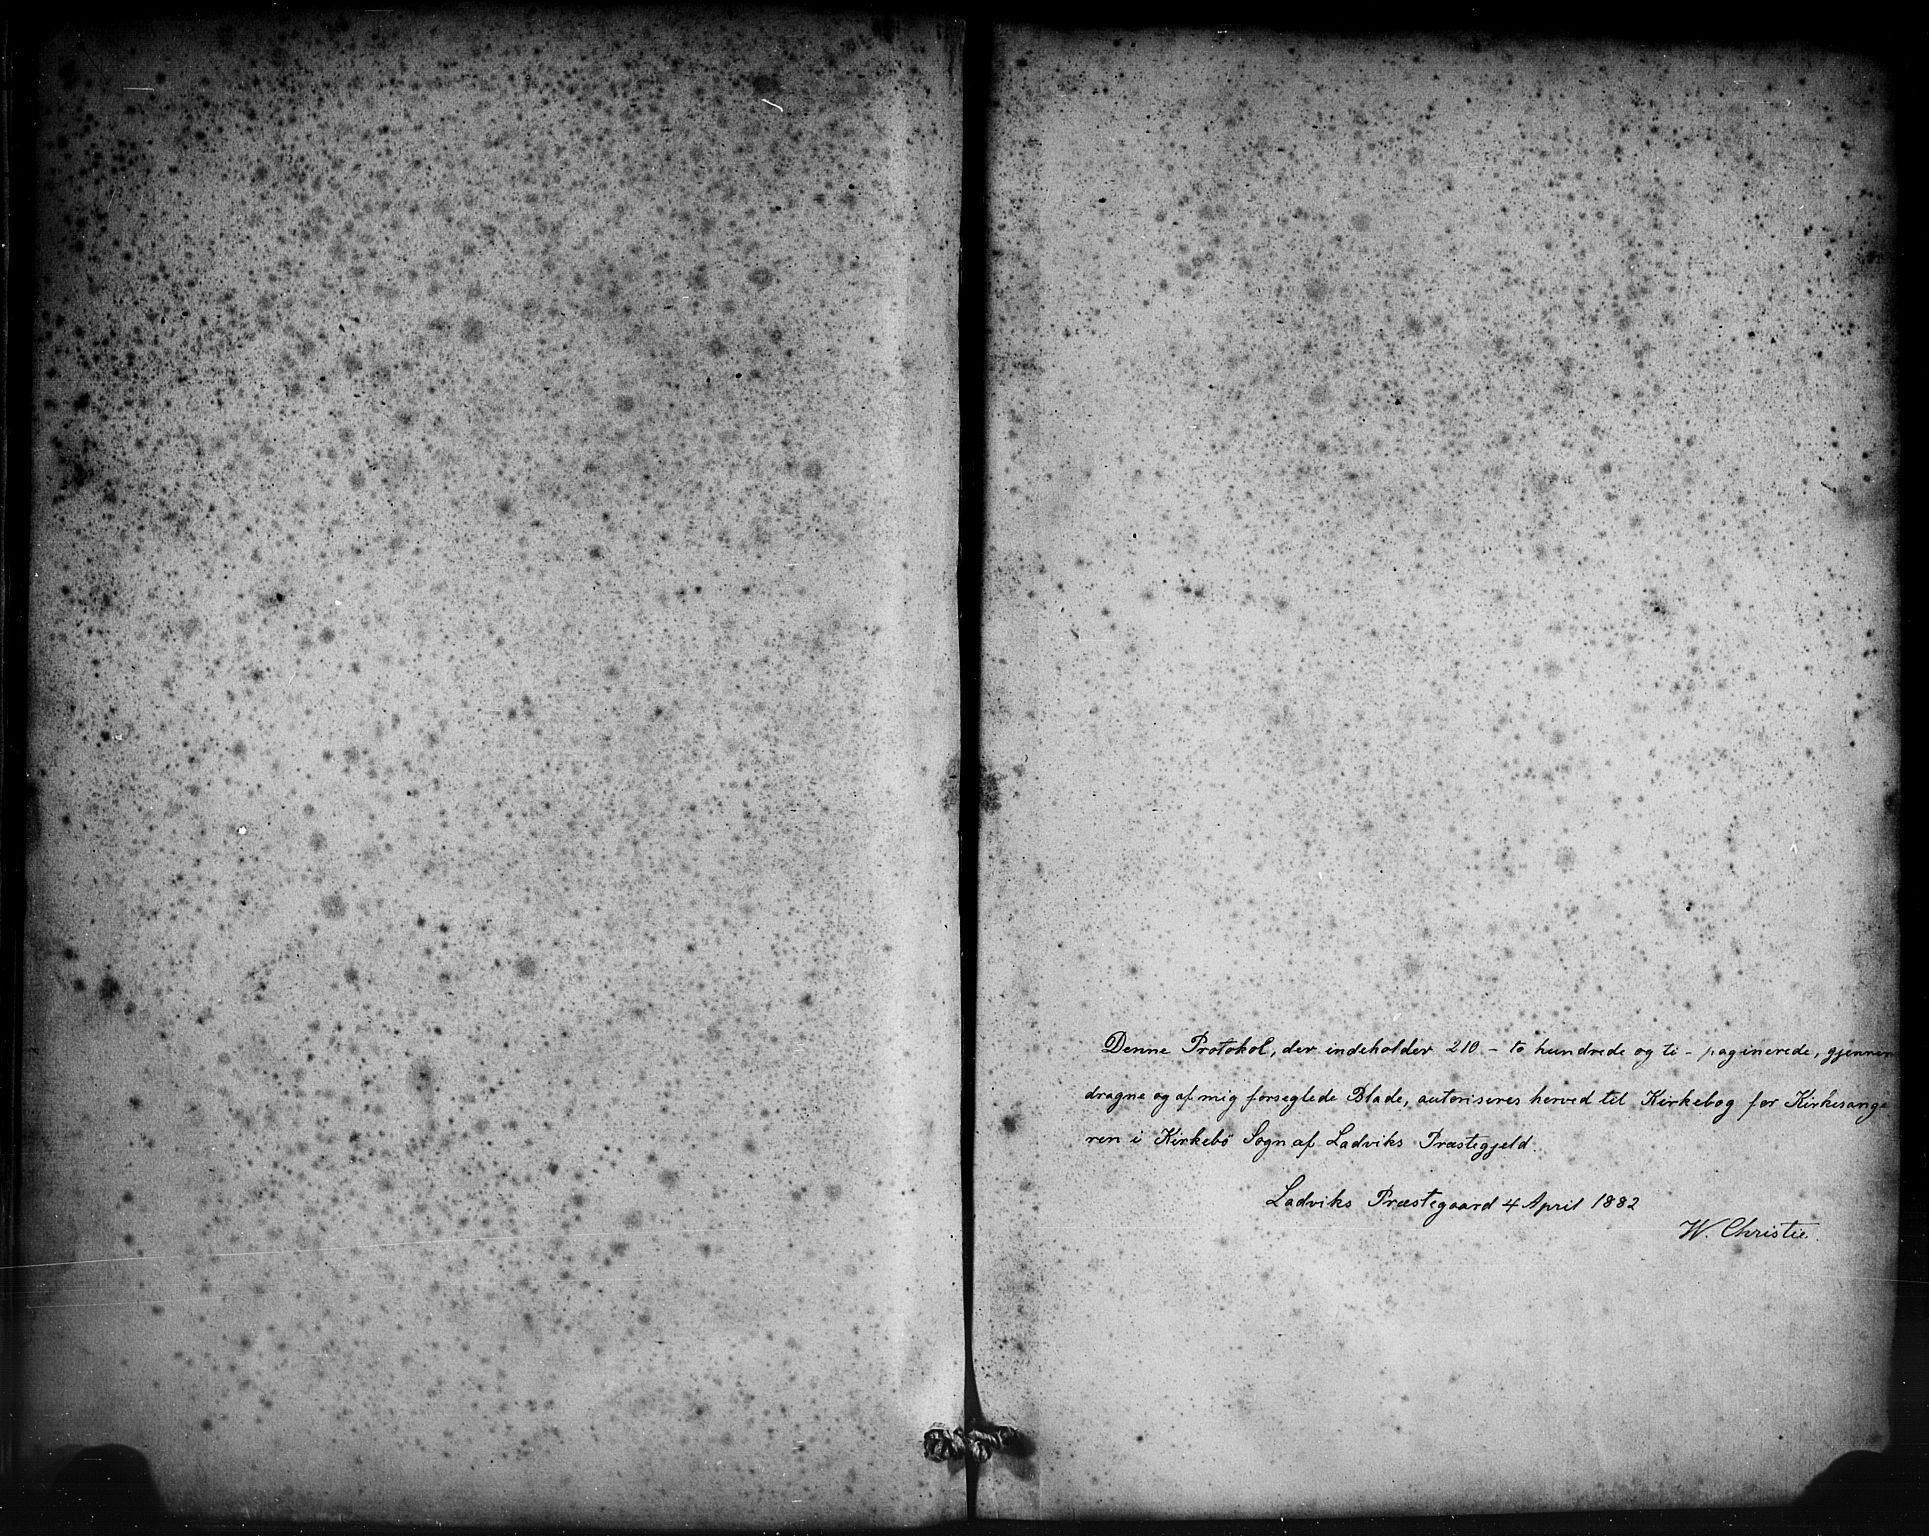 Denne Protokol, der indeholder 210 - to hundrede og ti - paginerede, gjennem
dragne og af mig forseglede Blade, autoriseres herved til Kirkebog for Kirkesange
ren i Kirkebø Sogn af Ladviks Præstegjeld.
Ladviks Præstegaard 4 April 1882
W. Christie.